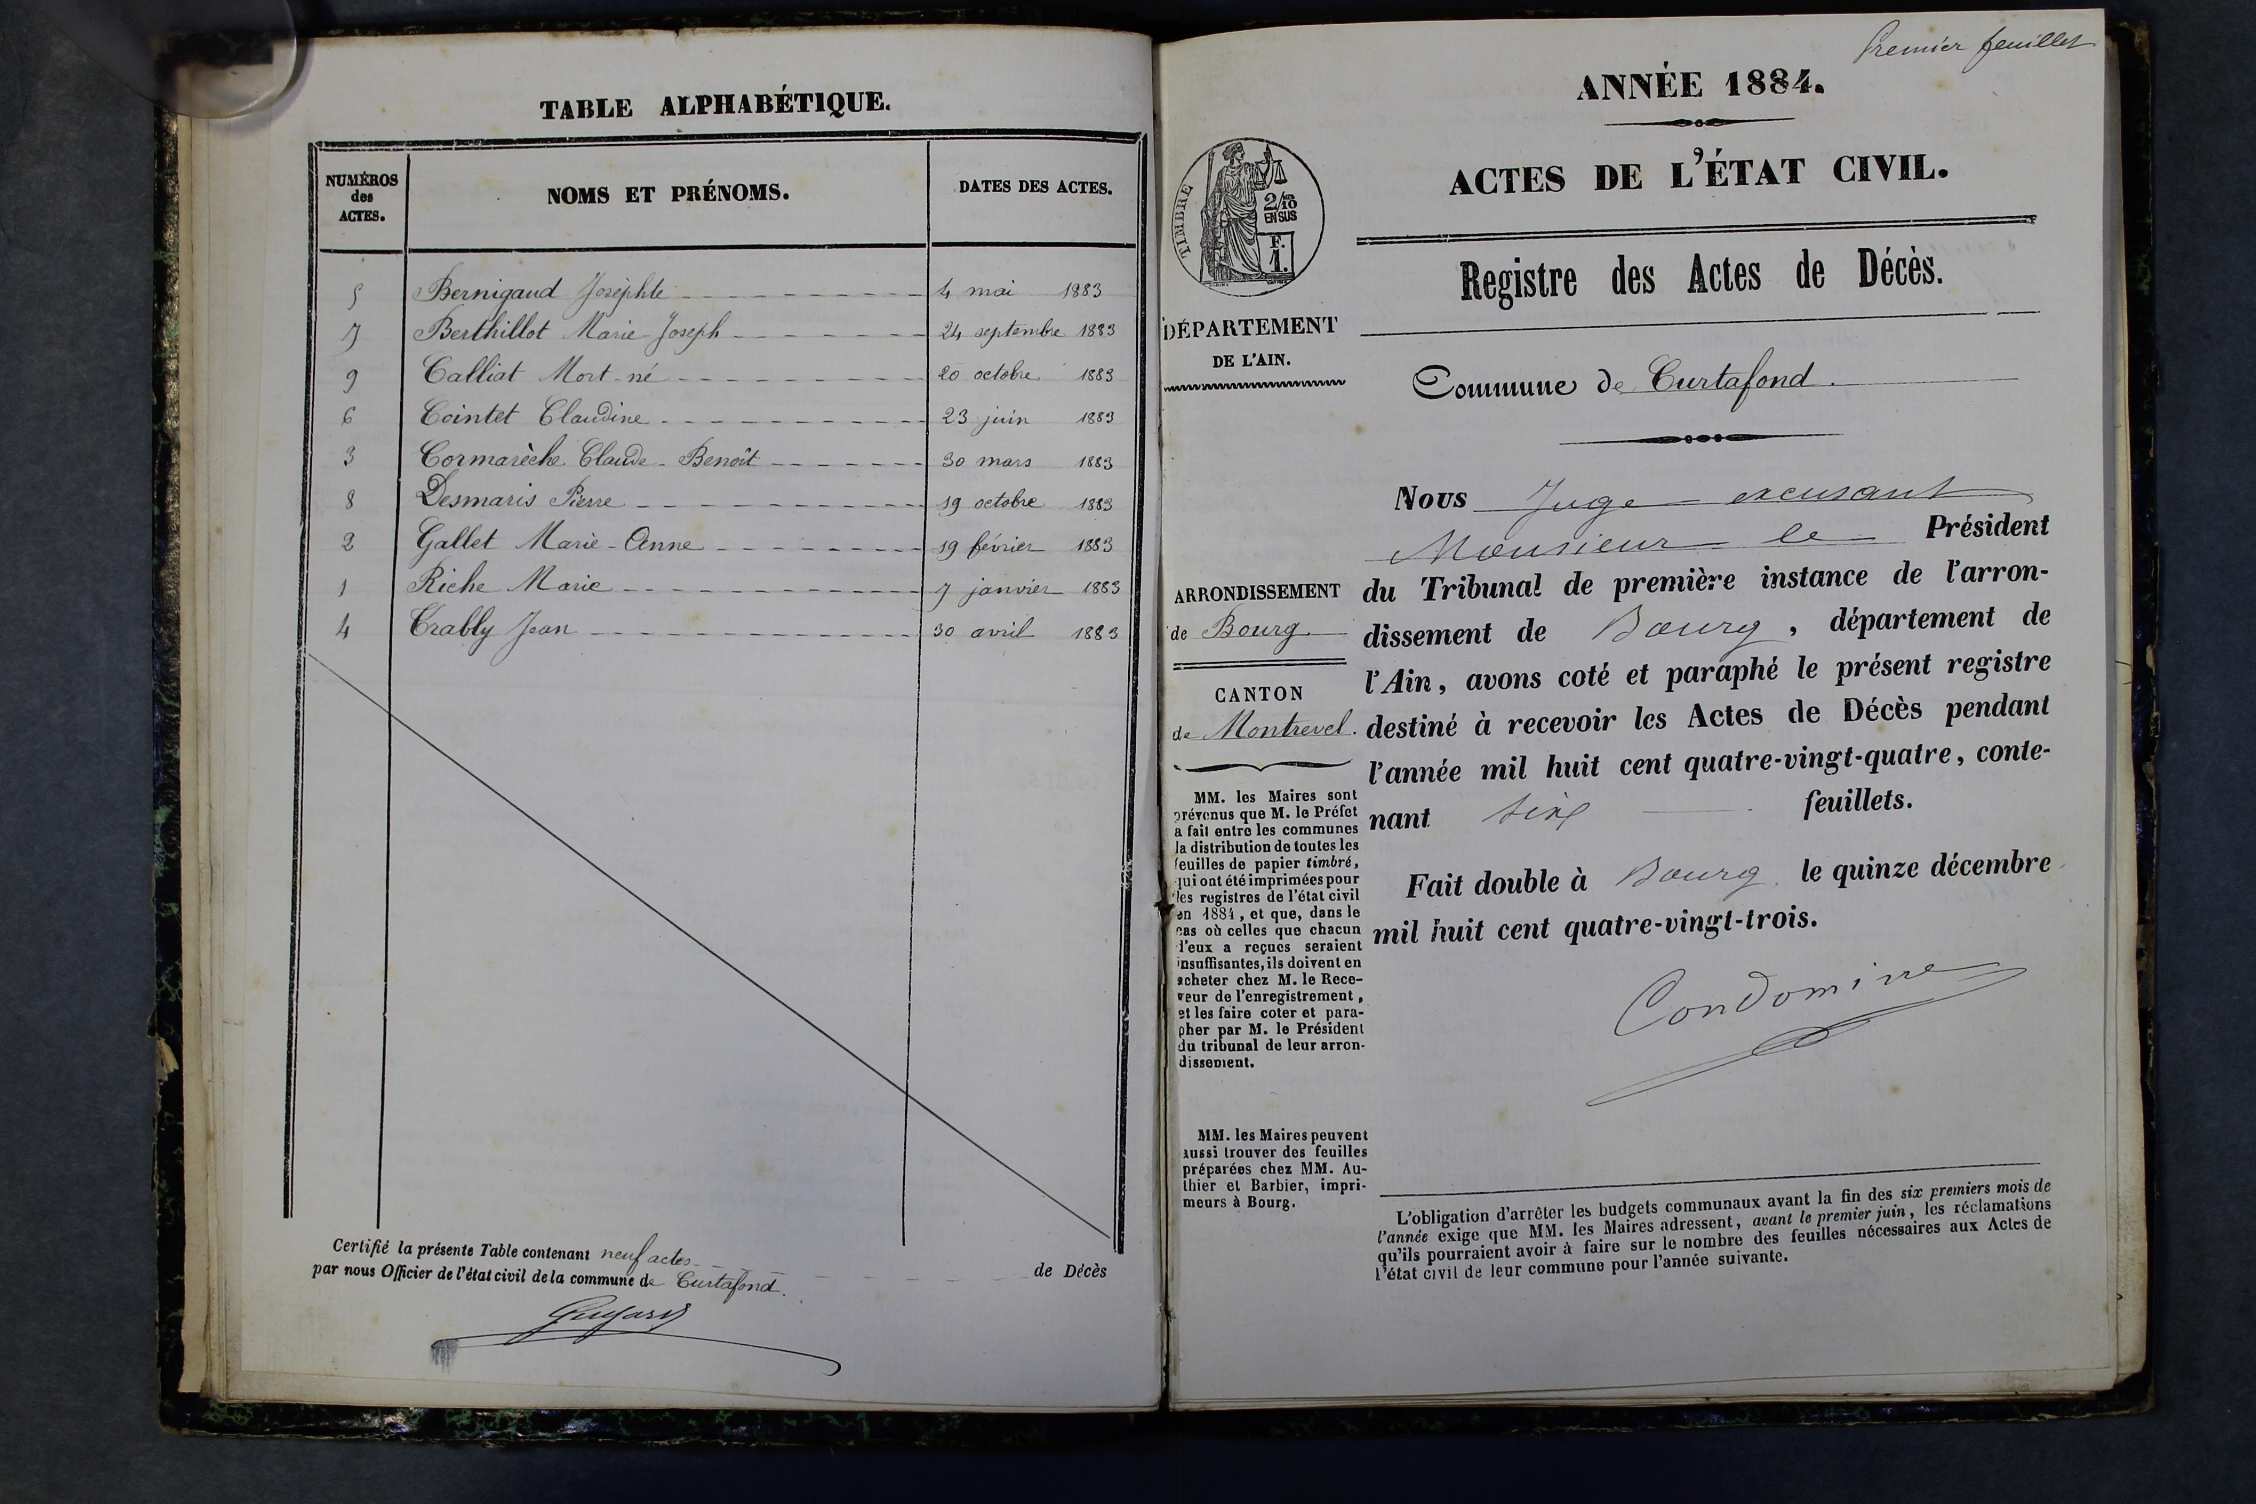 TABLE ALPHABÉTIQUE.
NUMÉROS des ACTES.
NOMS ET PRÉNOMS.
DATES DES ACTES.
5 Bernigaud Josephte 4 mai 1883
7 Berthillot Marie-Joseph 24 septembre 1883
9 Calliat Mort-né 20 octobre 1883
6 Cointet Claudine 23 juin 1883
3 Cormarèche Claude-Benoît 30 mars 1883
8 Desmaris Pierre 19 octobre 1883
2 Gallet Marie-Anne 19 février 1883
1 Riche Marie 7 janvier 1883
4 Trably Jean 30 avril 1883
Certifié la présente Table contenant neuf actes de Décès
par nous Officier de l'état civil de la commune de Curtafond.
Guyard
Premier feuillet
ANNÉE 1884.
ACTES DE L'ÉTAT CIVIL.
TIMBRE
2/10
EN SUS
F.
1.
DÉPARTEMENT
DE L'AIN.
ARRONDISSEMENT
de Bourg
CANTON
de Montrevel.
MM. les Maires sont
prévenus que M. le Préfet
a fait entre les communes
la distribution de toutes les
feuilles de papier timbré,
qui ont été imprimées pour
les registres de l'état civil
en 1884, et que, dans le
cas où celles que chacun
d'eux a reçues seraient
insuffisantes, ils doivent en
acheter chez M. le Rece-
veur de l'enregistrement,
et les faire coter et para-
pher par M. le Président
du tribunal de leur arron-
dissement.
MM. les Maires peuvent
aussi trouver des feuilles
préparées chez MM. Au-
thier et Barbier, impri-
meurs à Bourg.
Registre des Actes de Décès.
Commune de Curtafond.
Nous Juge excusant
Monsieur le Président
du Tribunal de première instance de l'arron-
dissement de Bourg, département de
l'Ain, avons coté et paraphé le présent registre
destiné à recevoir les Actes de Décès pendant
l'année mil huit cent quatre-vingt-quatre, conte-
nant six feuillets.
Fait double à Bourg le quinze décembre
mil huit cent quatre-vingt-trois.
Condomine
L'obligation d'arrêter les budgets communaux avant la fin des six premiers mois de
l'année exige que MM. les Maires adressent, avant le premier juin, les réclamations
qu'ils pourraient avoir à faire sur le nombre des feuilles nécessaires aux Actes de
l'état civil de leur commune pour l'année suivante.